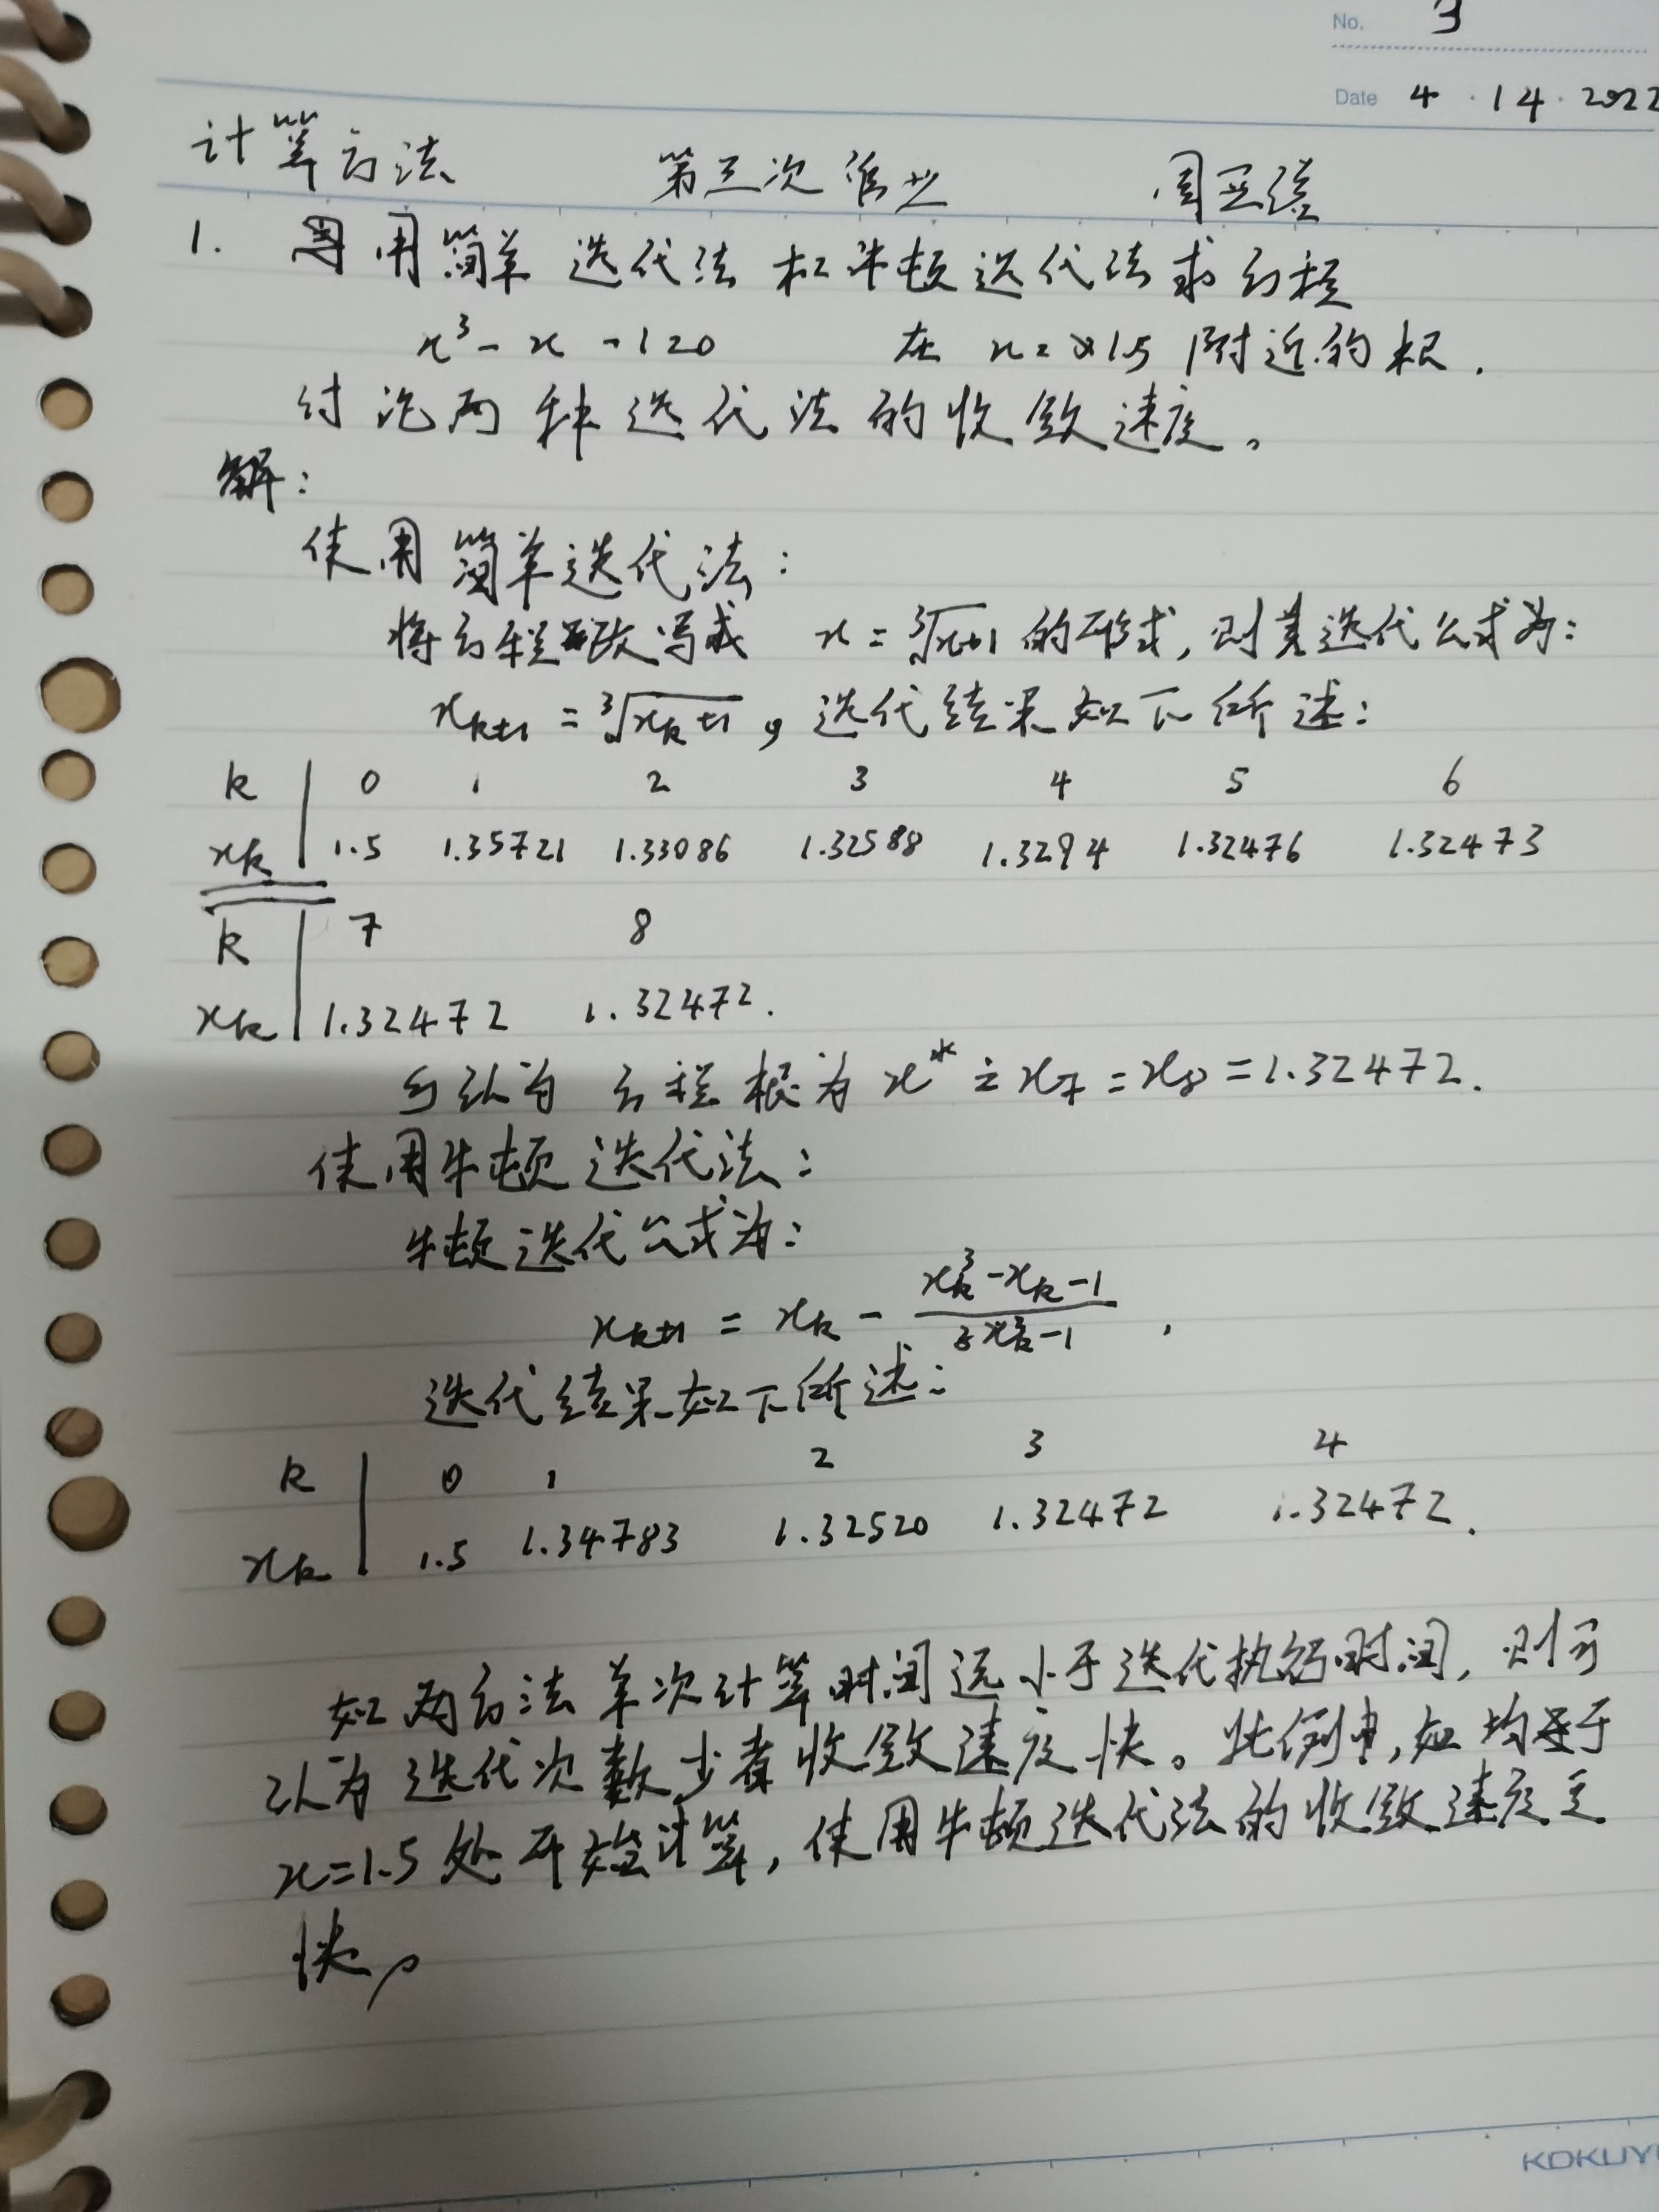 No. 3
Date 4 · 14 · 2022
计算方法 第三次作业
1. 用简单迭代法和牛顿迭代法求方程
x³ - x - 1 = 0 在 x = 1.5 附近的根.
讨论两种迭代法的收敛速度。
解:
使用简单迭代法:
将方程改写成 x = ∛(x+1) 的形式, 则其迭代公式为:
xₖ₊₁ = ∛(xₖ+1), 迭代结果如下所述:
k | 0 1 2 3 4 5 6
xₖ | 1.5 1.35721 1.33086 1.32588 1.3294 1.32476 1.32473
k | 7 8
xₖ | 1.32472 1.32472.
可认为 方程根为 x* ≐ x₇ = x₈ = 1.32472.
使用牛顿迭代法:
牛顿迭代公式为:
xₖ₊₁ = xₖ - (xₖ³ - xₖ - 1)/(3xₖ² - 1) ,
迭代结果如下所述:
k | 0 1 2 3 4
xₖ | 1.5 1.34783 1.32520 1.32472 1.32472.
如两方法单次计算时间远小于迭代执行时间, 则可
认为迭代次数少者收敛速度快。此例中, 如均于
x=1.5 处开始计算, 使用牛顿迭代法的收敛速度更
快。
KOKUY